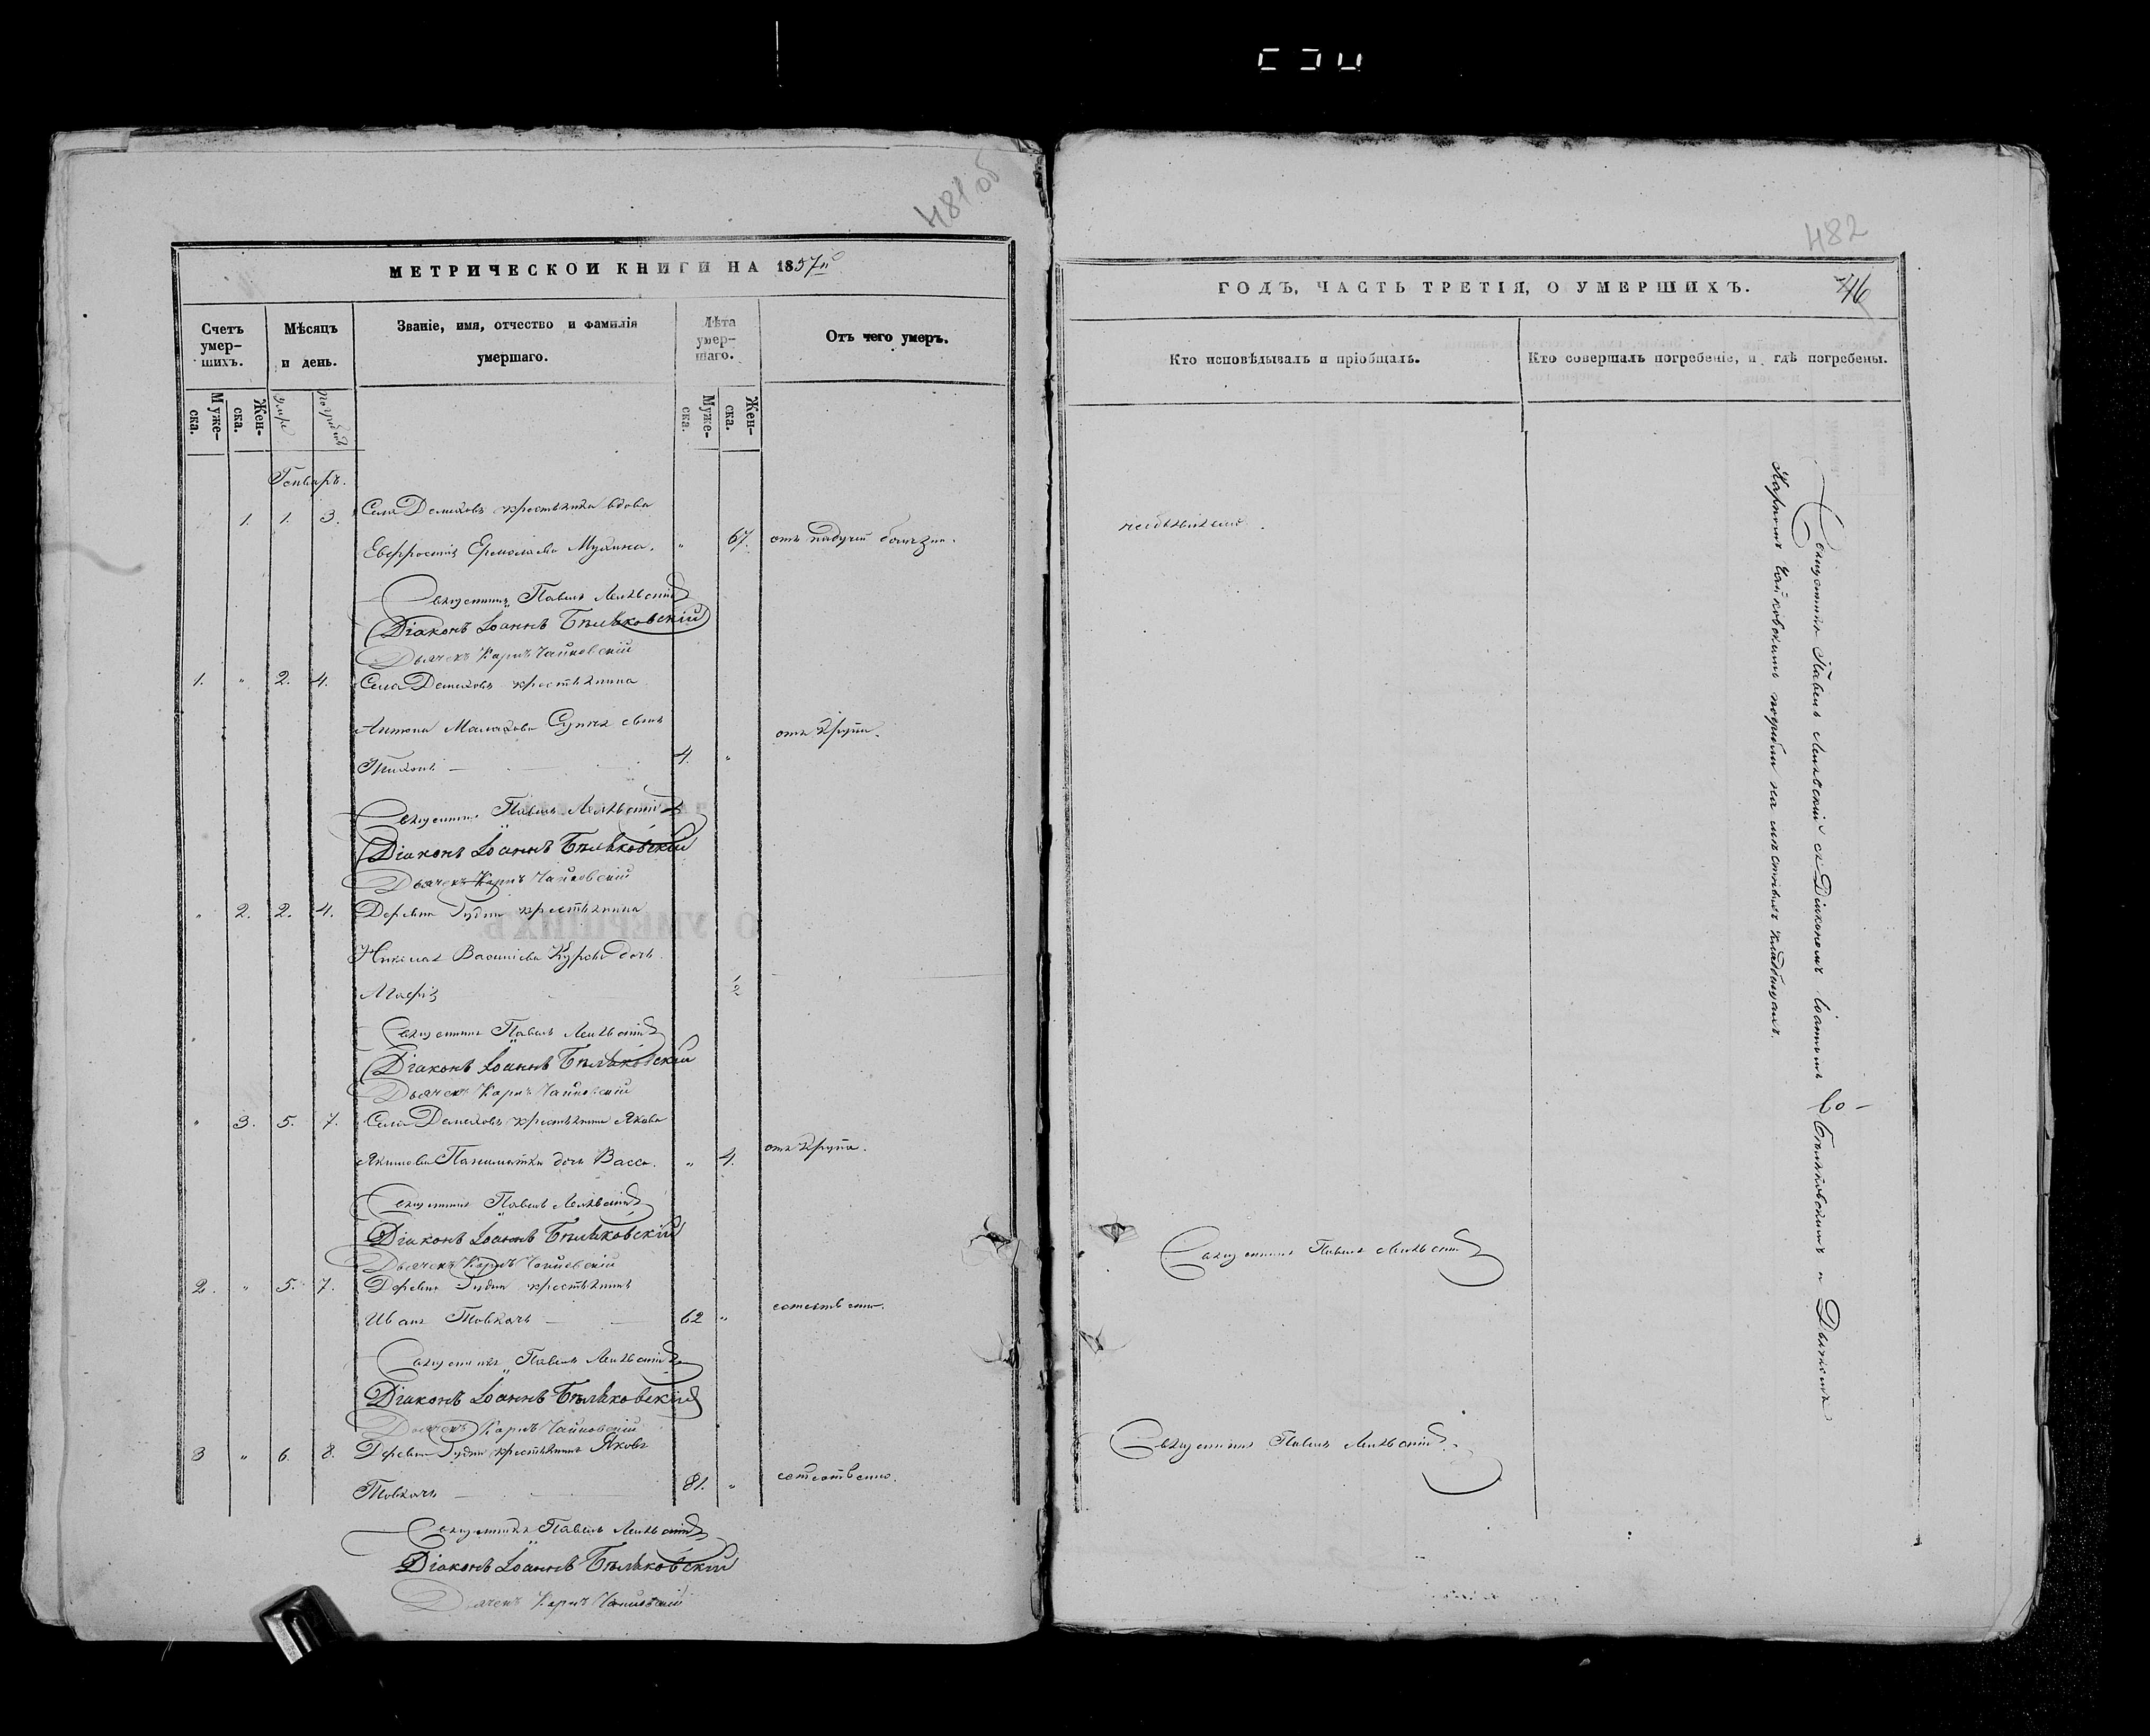 481 об
МЕТРИЧЕСКОЙ КНИГИ НА 1857й
Счетъ умер-
шихъ.
Мѣсяцъ
и день.
Званіе, имя, отчество и фамилія
умершаго.
Лѣта
умер-
шаго.
Отъ чего умеръ.
Муже-
ска.
Жен-
ска.
Муже-
ска.
Жен-
ска.
Генварь.
1. 1. 3. Села Демиховъ крестьянка вдова
Евфросинія Ермолаева Мухина. „ 67. отъ падучей болезни.
Священникъ Павелъ
Діаконъ Іоаннъ Бѣльковскій
Дьячекъ Карпъ Чайковскій
1. „ 2. 4. Села Демиховъ крестьянина
Антона Малахова сынъ
Тихонъ 4. „ отъ крупа.
Священникъ Павелъ
Діаконъ Іоаннъ Бѣльковскій
Дьячекъ Карпъ Чайковскій
„ 2. 2. 4. Деревни крестьянина
Николая Василіева дочь
Марія 1/2
Священникъ Павелъ
Діаконъ Іоаннъ Бѣльковскій
Дьячекъ Карпъ Чайковскій
„ 3. 5. 7. Села Демиховъ крестьянина Якова
Якимова дочь Васса. „ 4. отъ крупа.
Священникъ Павелъ
Діаконъ Іоаннъ Бѣльковскій
Дьячекъ Карпъ Чайковскій
2. „ 5. 7. Деревни крестьянинъ
Иванъ Товкачъ 62 „ естественно.
Священникъ Павелъ
Діаконъ Іоаннъ Бѣльковскій
Дьячекъ Карпъ Чайковскій
3 „ 6. 8. Деревни крестьянинъ Яковъ
Товкачъ 81. „ естественно.
Священникъ Павелъ
Діаконъ Іоаннъ Бѣльковскій
Дьячекъ Карпъ Чайковскій
482
ГОДЪ, ЧАСТЬ ТРЕТІЯ, О УМЕРШИХЪ.
Кто исповѣдывалъ и пріобщалъ.
Кто совершалъ погребеніе, и гдѣ погребены.
Священникъ Павелъ
Священникъ Павелъ
Священникъ Павелъ съ Діакономъ Іоанномъ Бѣльковскимъ и Дьячкомъ
Карпомъ Чайковскимъ погребли на кладбищахъ.